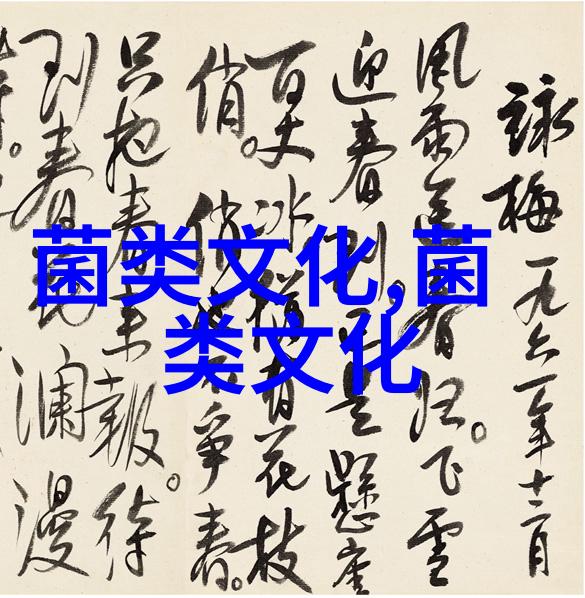 詠梅 一九六一年十二月
風雨送春归。飞雪
迎春到,已是懸崖
百丈冰,犹有花枝
俏。俏也不争春。
只把春来報。待
到春花瀾漫
菌类文化,菌
类文化